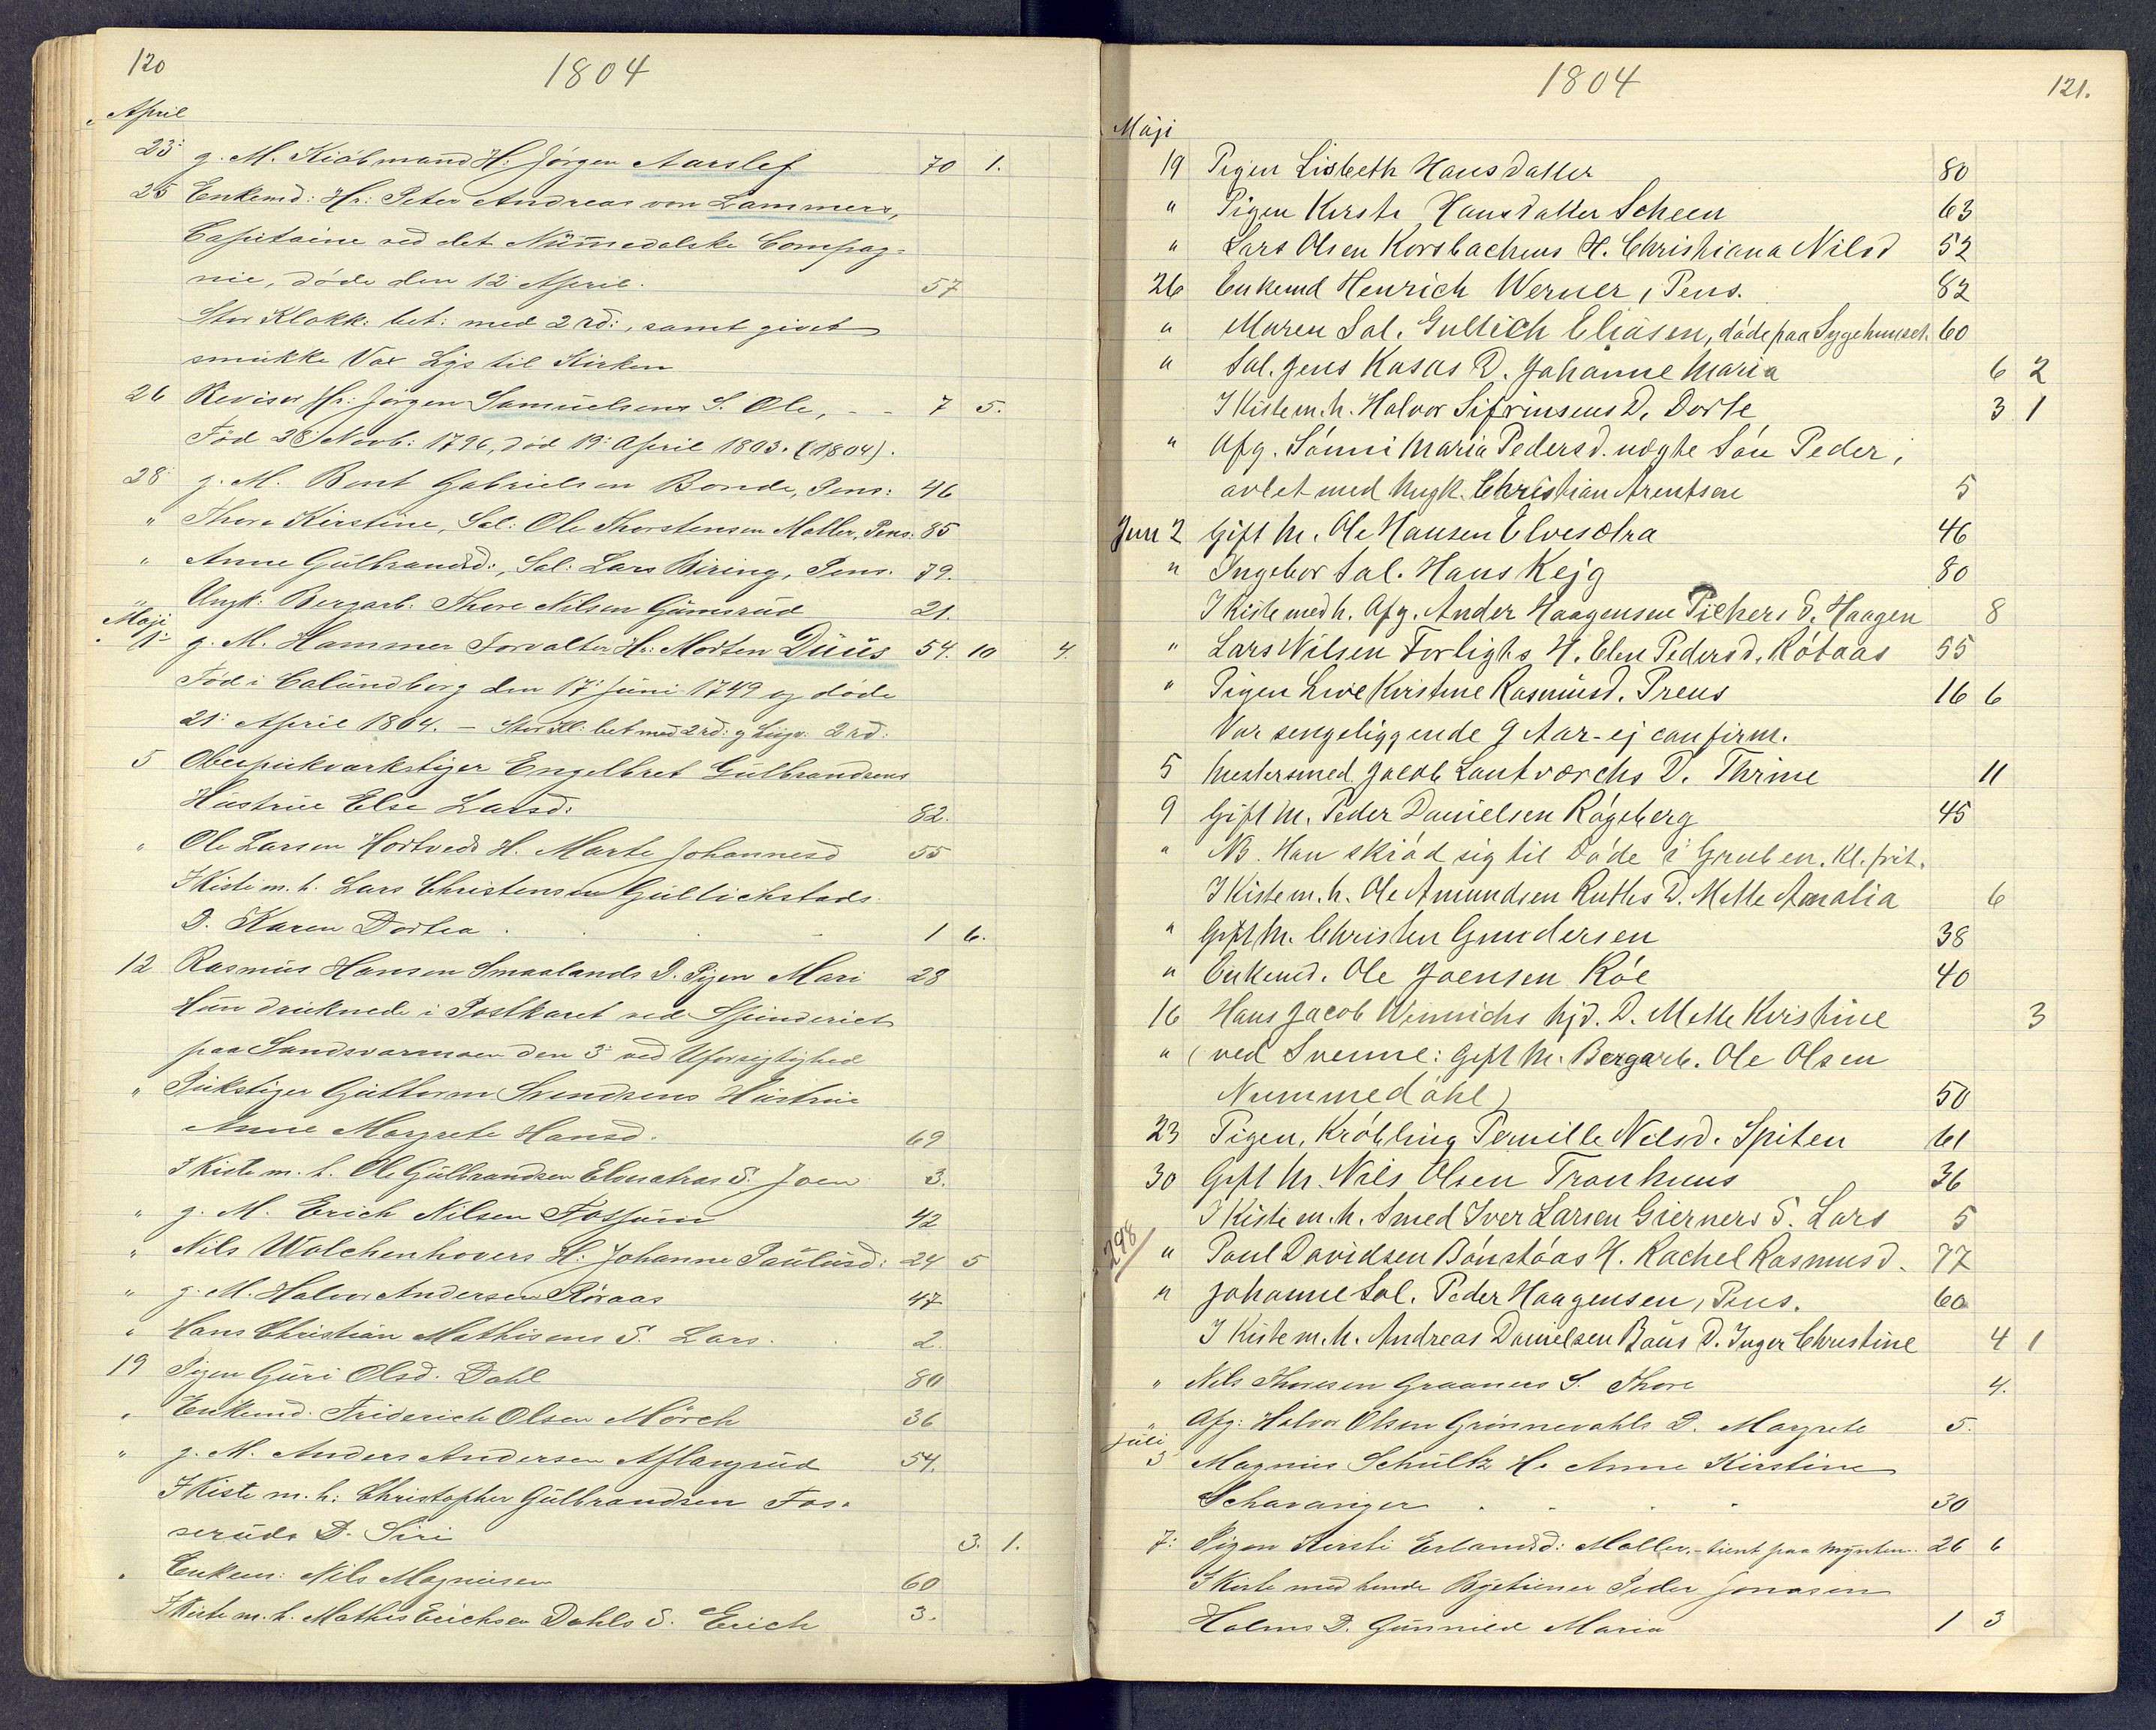 120
1804
April
23: g. M. Kiöbmand H: Jörgen Aarslef 70 1.
25 Enkemd: Hr: Peter Andreas von Lammers,
Capitaine ved det Nummedalske Compag-
nie, döde den 12 April. 57
Stor Klokk: bet: med 2 rd:, samt givet
smukke Vox Lys til Kirken
26 Revisor Hr: Jörgen Samuelsens S. Ole, - - 7 5.
Föd 28 Novb: 1796, död 19: April 1803. (1804).
28 g. M. Bent Gabrielsen Bonde, Pens: 46
" Thore Kirstine, Sal: Ole Thorstensen Moller, Pens: 85
" Anne Gulbrandsd:, Sal: Lars Biring, Pens. 79.
" Ungk: Bergarb: Thore Nilsen Gamsrud 21.
Maji
1: g. M. Hammer Forvalter Hr: Morten Duus 54. 10 4.
Född i Calundborg den 17: Juni 1749 og döde
21: April 1804. - Stor Kl: bet med 2 rd: g 2 rd:
5 Oberpukværkstiger Engelbret Gulbrandsens
Hustrue Else Larsd: 82.
" Ole Larsen Hortveds H. Marte Johannesd 55
I Kiste m. h. Lars Christensen Gullichstads
D. Karen Dortea 1 6.
12 Rasmus Hansen Smaalands D. Pigen Mari 28
Hun druknede i Postkaret ved
paa Sandsværmoen den 3: ved Uforsigtighed
" Pukstiger Guttorm Svendsens Hustrue
Anne Margrete Hansd. 69
I Kiste m. h. Ole Gulbrandsen Elvesetras S. Joen 3.
" g. M. Erich Nilsen Fossum 42
" Nils Wolchenhovers H: Johanne Paulusd: 24 5
" g. M. Halvor Andersen Röraas 47
" Hans Christian Mathisens S. Lars. 2.
19 Pigen Guri Olsd. Dahl 80
" Enkemd. Friderich Olsen Mörch 36
" g. M. Anders Andersen Aflangrud 54.
I Kiste m. h: Christopher Gulbrandsen Fos-
seruds D. Siri 3. 1.
" Enkem: Nils Magnusen 60
I Kiste m. h. Mathis Erichsen Dahls S. Erich 3.
1804
121.
Maji
19 Pigen Lisbeth Hansdatter 80
" Pigen Kirsti Hansdatter Scheen 63
" Lars Olsen Korsbachens H. Christiana Nilsd 52
26 Enkemd Henrich Werner, Pens. 82
" Maren Sal. Gullich Eliasen, döde paa Sygehuuset. 60
" Sal. Jens Kasas D. Johanne Maria 6 2
I Kiste m. h. Halvor Sifrinsens D. Dorte 3 1
" Afg. Sönni Maria Pedersd. uægte Sön Peder,
avlet med Ungk. Christian Arentsen 5
Jun 2 Gift M. Ole Hansen Elvesætra 46
" Ingebor Sal. Hans Kejg 80
I Kiste med h. Afg. Ander Haagensen Pickers S. Haagen 8
" Lars Nilsen Forligts H. Elen Pedersd. Rötaas 55
" Pigen Live Kirstine Rasmusd. Preus 16 6
Var sengeliggende 9 Aar - ej confirm.
5 Mestersmed Jacob Lantværchs D. Thrine 11
9 Gift M. Peder Danielsen Rögeberg 45
" NB. Han skiöd sig til Döde i Gruben. Kl. frit.
I Kiste m. h. Ole Amundsen Ruths D. Mette Amalia 6
" Gift M. Christen Gundersen 38
" Enkemd. Ole Joensen Röe 40
16 Hans Jacob Winnichs hjd. D. Mette Kristine 3
" (ved Svenne: Gift M. Bergarb. Ole Olsen
Nummedahl) 50
23 Pigen, Kröbling Pernille Nilsd. Spiten 61
30 Gift M. Nils Olsen Tronhuus 36
I Kiste m. h. Smed Iver Larsen Gierners S. Lars 5
298/ " Poul Davidsen Bönstöas H. Rachel Rasmusd. 77
" Johanne Sal. Peder Haagensen, Pens. 60
I Kiste m. h. Andreas Danielsen Baus D. Inger Christine 4 1
" Nils Thoresen Graaners S. Thore 4.
" Afg: Halvor Olsen Grönnevahls D. Margrete 5.
Juli
3 Magnus Schultz H. Anne Kirstine
Schavanger 30
7: Pigen Kirsti Erlandsd: Moller. - tient paa Mynten. 26 6
I Kiste med hende Bytiener Peder Jonasen
Holms D. Gunnild Maria 1 3